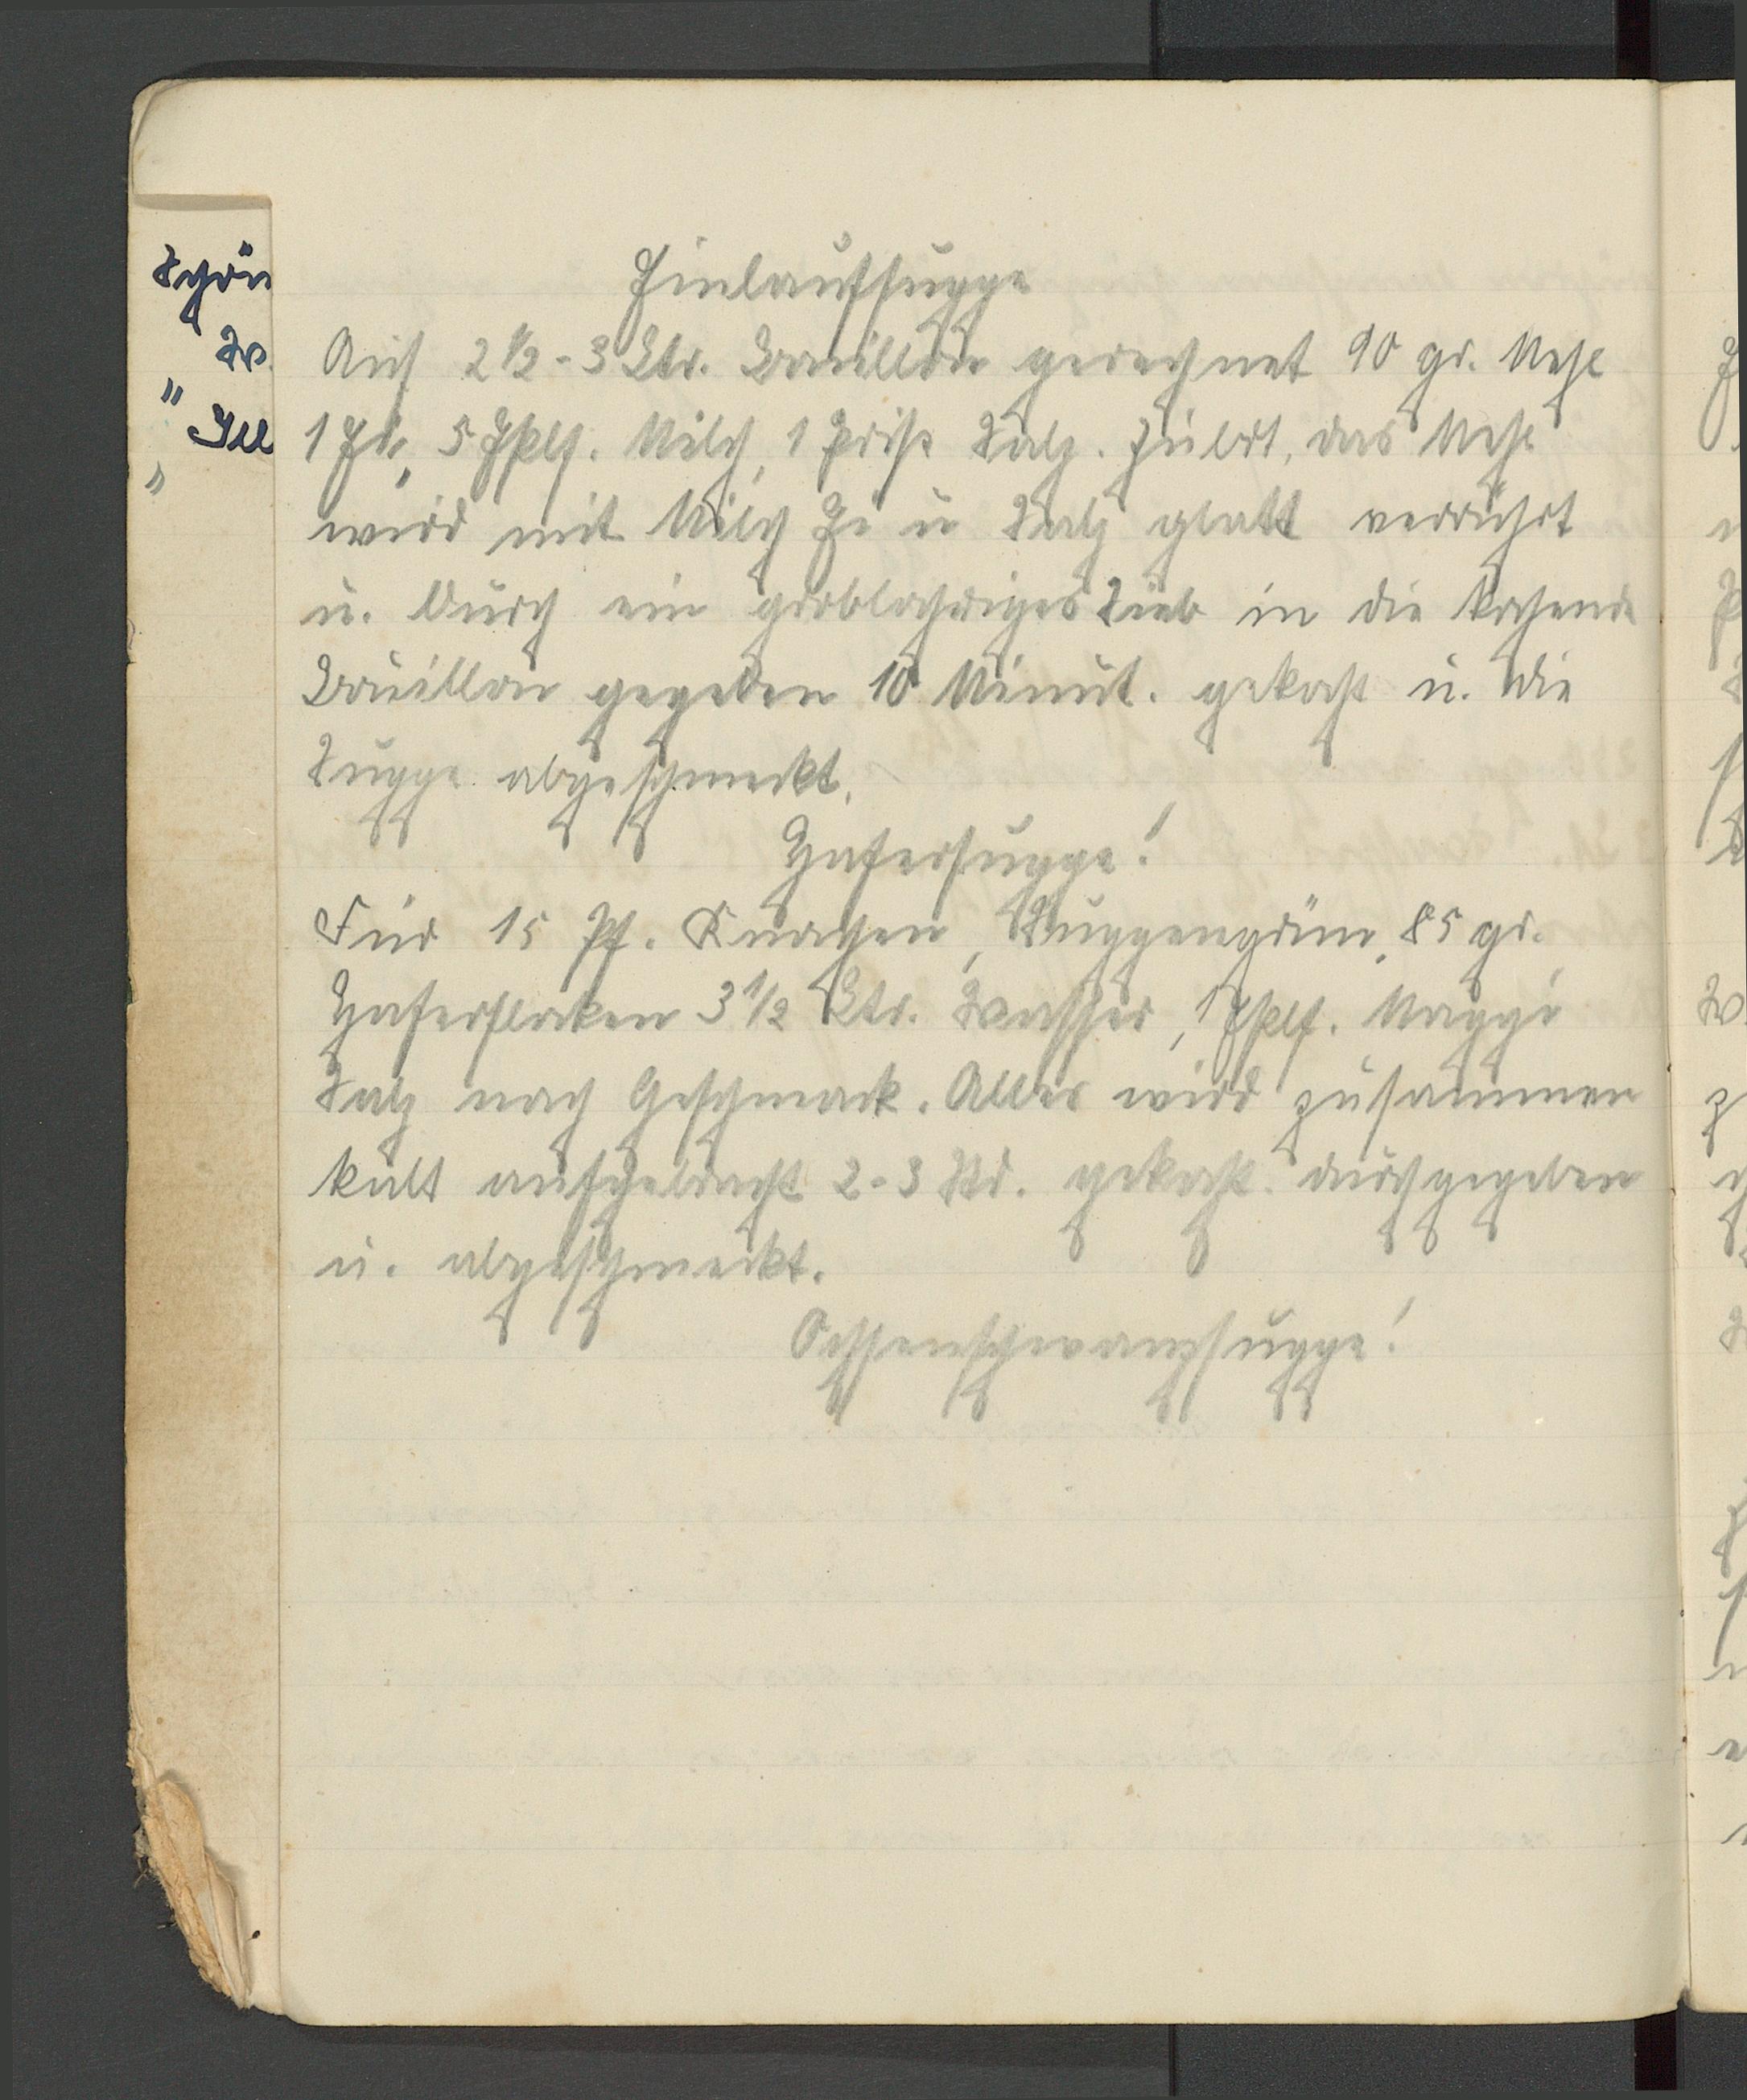 Einlaufsuppe
Auf 2 1/2 - 3 Ltr. Bouillon gerechnet 90 gr. Mehl
1 Ei, 5 Eßlf. Milch, 1 Prise Salz. Zubrt. das Mehl
wird mit Milch Ei u Salz glatt verrührt
u. durch ein groblochriges Sieb in die kochende
Bouillon gegeben 10 Minut. gekocht u. die
Suppe abgeschmeckt.
Hafersuppe!
Für 15 Pf. Knochen, Suppengrün, 85 gr.
Haferflocken 3 1/2 Ltr. Wasser, 1 Eßlf. Maggi
Salz nach Geschmack. Alles wird zusammen
kalt aufgebracht 2-3 Std. gekocht durchgegeben
u. abgeschmeckt.
Ochsenschwanzsuppe!